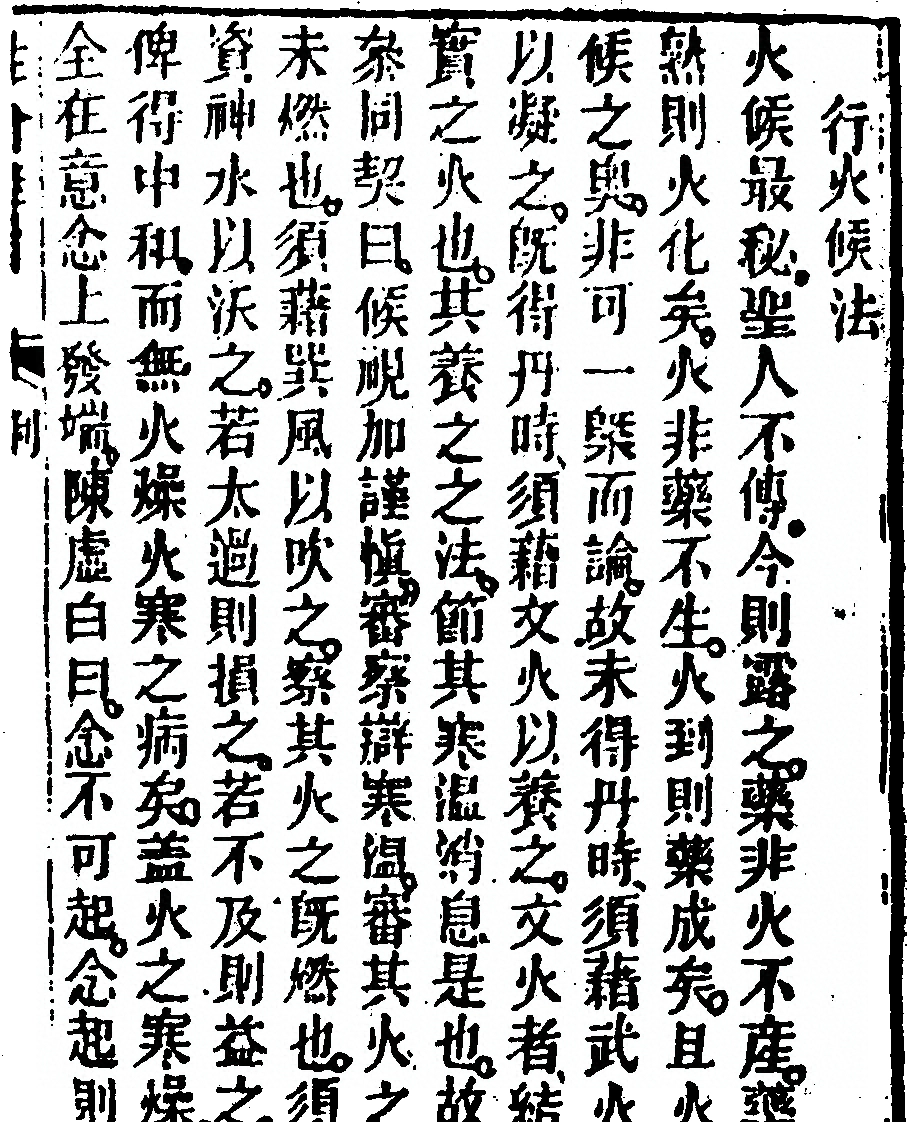 行火候法
火候最秘。聖人不傳。今則露之。藥非火不產。藥
熟則火化矣。火非藥不生。火到則藥成矣。且火
候之奧。非可一槩而論。故未得丹時、須藉武火
以凝之。旣得丹時、須藉文火以養之。文火者、結
實之火也。其養之之法。節其寒溫消息是也。故
叅同契曰。候視加謹愼。審察辯寒溫。審其火之
未燃也。須藉巽風以吹之。察其火之旣燃也。須
資神水以沃之。若太過則損之。若不及則益之。
俾得中和。而無火燥火寒之病矣。蓋火之寒燥
全在意念上發端。陳虛白曰。念不可起。念起則